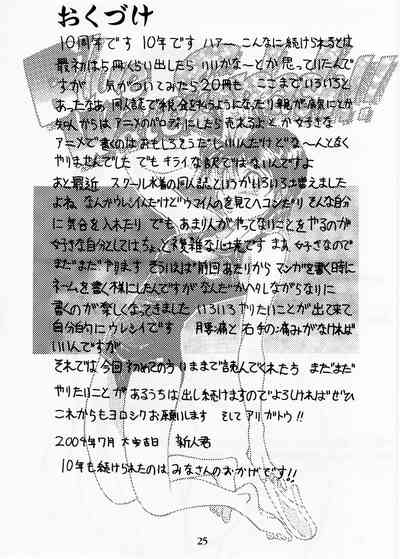 おくづけ
10周年です 10年です ハァー こんなに続けられるとは
最初は5冊くらい出したら いいかな〜とか思っていたんで
すが 気がついてみたら20冊も ここまでいろいろと
あったなぁ 同人誌で税金を払うようになったり 親が病気にとか
知人からは アニメのパロディにしたら売れるよ とか 好きな
アニメで書くのは おもしろそうだしいいんだけどな〜んとなく
やりませんでした でも キライな訳ではないんですよ
あと最近 スクール水着の同人誌というかいろいろ増えました
よね なんかウレシイんだけど ウマイ人のを見てヘコンだり そんな自分
に気合を入れたり でも あまり人がやってないことをやるのが
好きな自分としてはちょっと複雑な心境です まぁ 好きなので
まだまだ やります そういえば前回あたりから マンガを書く時に
ネームを書く様にしたんですが なんだかヘタしながらなりに
書くのが楽しくなってきました いろいろやりたいことが出て来て
自分的にウレシイです 腰痛と右手の痛みがなければ
いいんですが
それでは 今回初めてのう いままで読んでくれたう まだまだ
やりたいことが あるうちは出し続けますのでよろしければぜひ
これからもヨロシクお願いします そして アリガトウ!!
2004年7月 大安吉日 新人君
10年も続けられたのは みなさんのおかげです!!
25